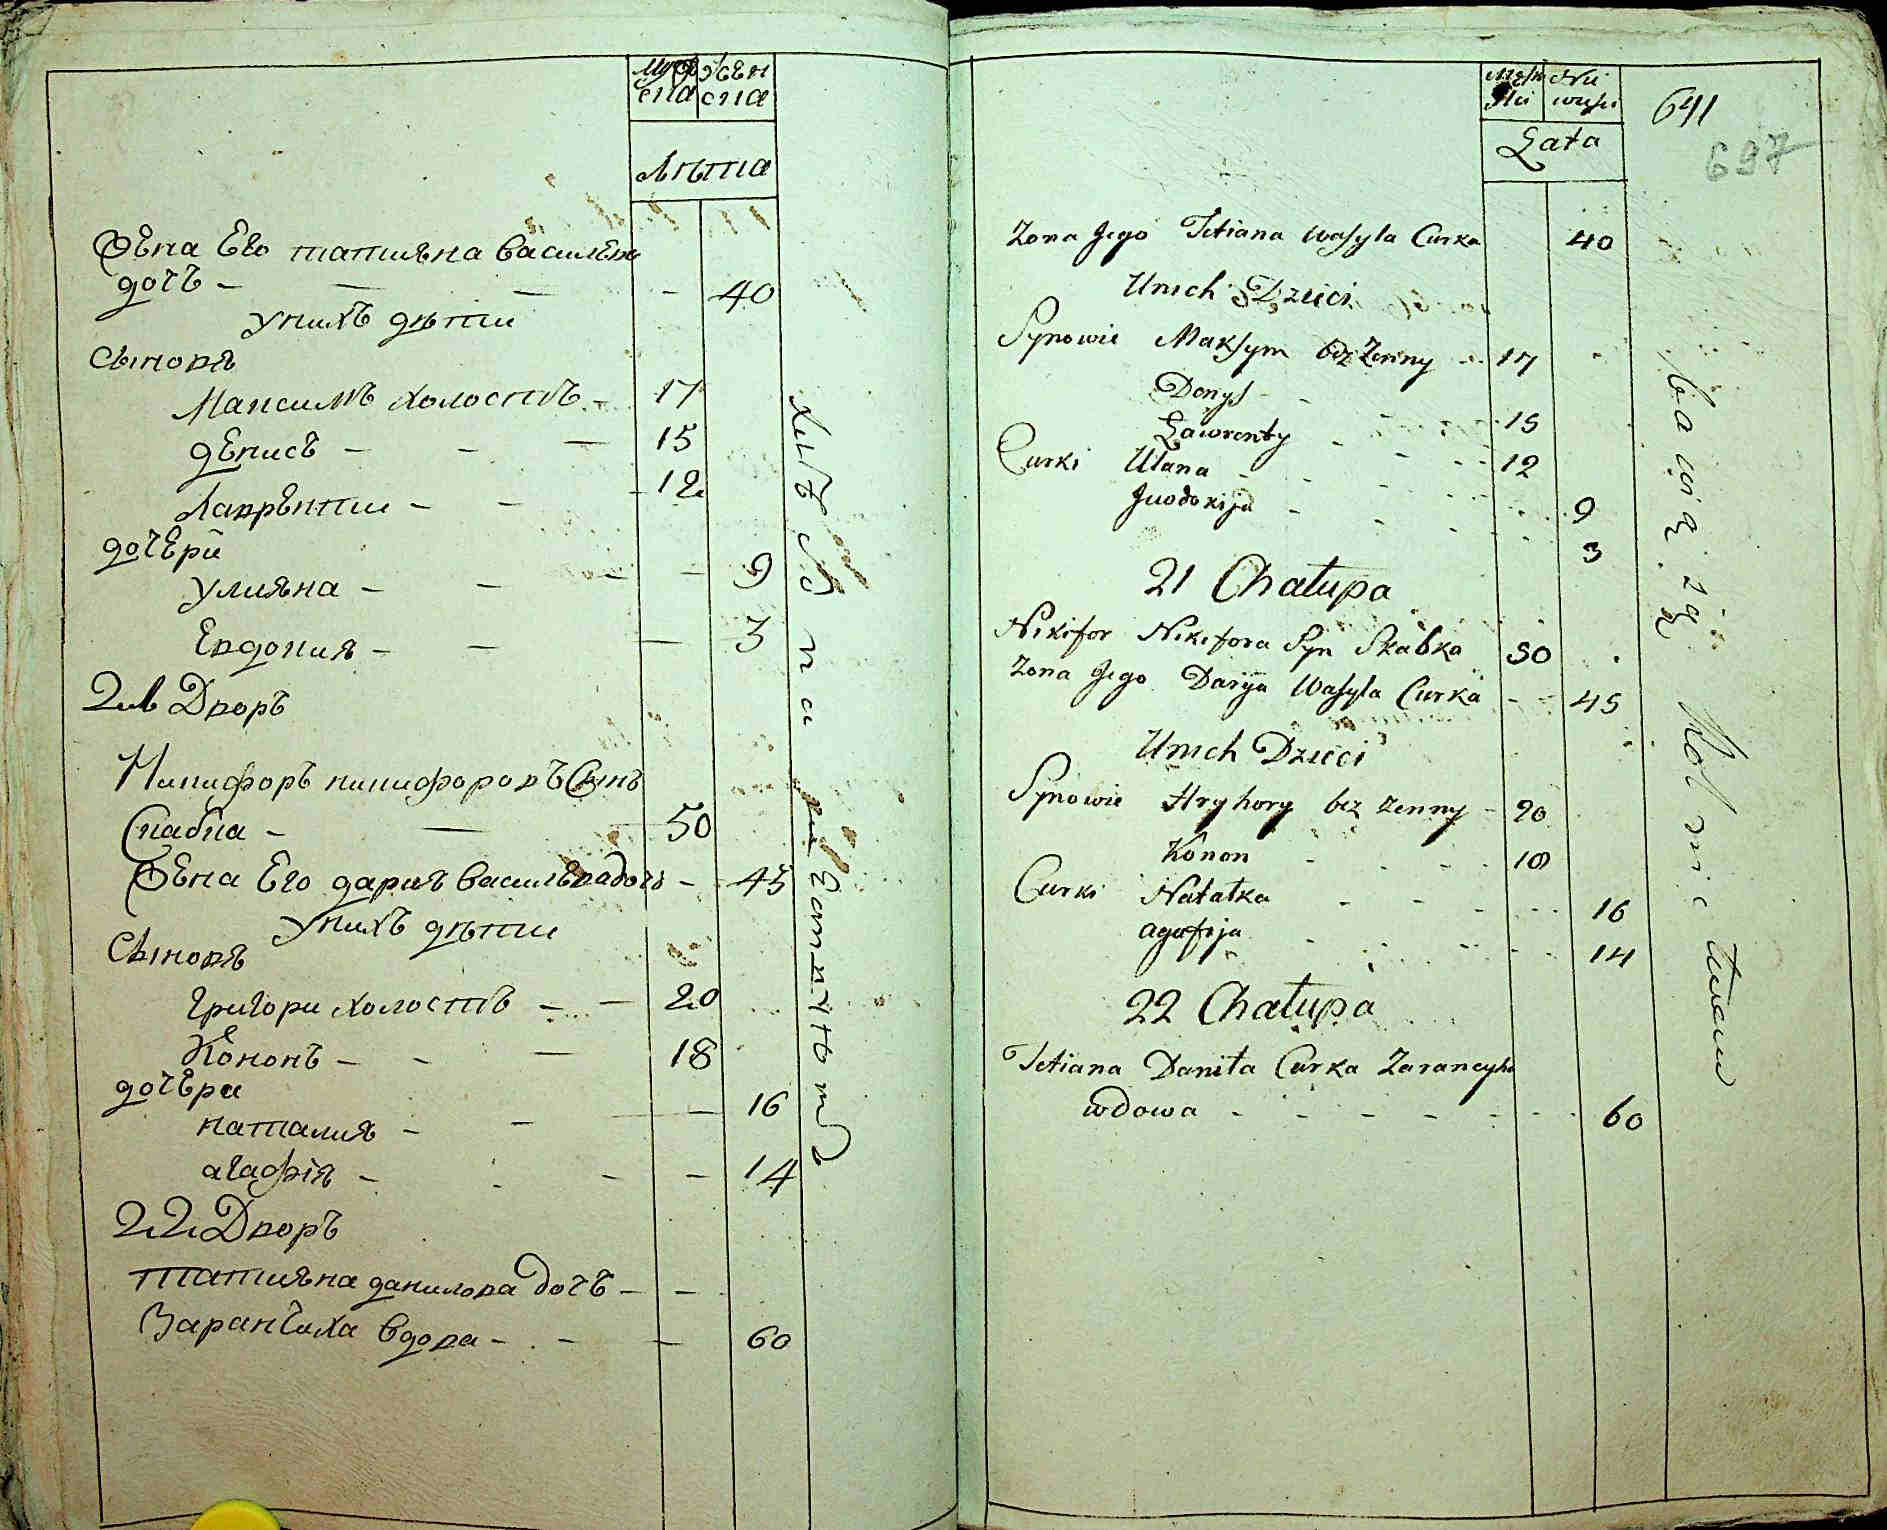 муже женс
ска ска
Лѣта
Жена Его татияна василева
дочь - - - - 40
У нихъ дѣти
Сыновя
Максимъ холостъ - 17
денисъ - - - 15
Лаврѣнти - - - 12
дочери
улияна - - - - - 9
Евдокия - - - 3
21 Дворъ
Никифоръ никифоровъ Сынъ
Скабка - - - 50
Жена Его дария василева дочь - - 45
У нихъ дѣти
Сыновя
григори холостъ - - 20
Кононъ - - - 18
дочери
наталия - - - 16
агафія - - - 14
22 Дворъ
татияна данилова дочь - -
Заранчиха вдова - - - 60
641
697
Łata
Zona Jego Tetiana Wasyla Curka 40
Unich Dzieci
Synowie Maksym bez Zenny - 17
Denys - - - 15
Ławrenty - - - 12
Curki Ulana - - - 9
Jwdokija - - - 3
21 Chałupa
Nikifor Nikifora Syn Skabka 50
Zona Jego Daryja Wasyla Curka - - 45
Unich Dzieci
Synowie Hryhory bez zenny - 20
Konon - - - 18
Curki Natałka - - - 16
agafija - - - 14
22 Chałupa
Tetiana Daniła Curka Zarancycha
wdowa - - - - - 60